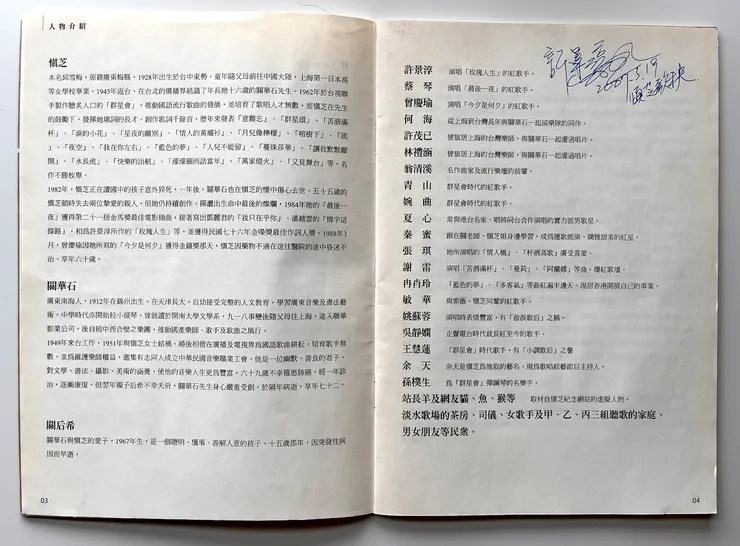 人物介紹
慎芝
本名邱雪梅，原籍廣東梅縣，1928年出生於台中東勢。童年隨父母前往中國大陸，上海第一日本高
等女學校畢業。1945年返台，在台北的廣播界結識了年長她十六歲的關華石先生。1962年於台視聯
手製作膾炙人口的「群星會」，推動國語流行歌曲的發展，並培育了歌唱人才無數。而慎芝在先生
的鼓勵下，發揮她填詞的長才，創作歌詞千餘首，歷年來發表「意難忘」、「群星頌」、「苦酒滿
杯」、「淚的小花」、「星夜的離別」、「情人的黃襯衫」、「月兒像檸檬」、「榕樹下」、「風
」、「夜空」、「我在你左右」、「藍色的夢」、「人兒不能留」、「蔓珠莎華」、「讓我默默離
開」、「水長流」、「快樂的出航」、「濛濛細雨話當年」、「萬家燈火」、「又見舞台」等，名
作不勝枚舉。
1982年，慎芝正在讀國中的孩子意外猝死，一年後，關華石也在慎芝的懷中傷心去世。五十五歲的
慎芝頓時失去兩位摯愛的親人，但她仍持續創作，揮灑出生命中最後的燦爛，1984年她的「最後一
夜」獲得第二十一屆金馬獎最佳電影插曲，接著寫出鄧麗君的「我只在乎你」、潘越雲的「情字這
條路」，和為許景淳所作的「玫瑰人生」等，並獲得民國七十六年金嗓獎最佳作詞人獎。1988年3
月，曾慶瑜因她所寫的「今夕是何夕」獲得金鐘獎那天，慎芝因藥物不適在送往醫院的途中昏迷不
治，享年六十歲。
關華石
廣東南海人，1912年在錦州出生，在天津長大。自幼接受完整的人文教育，學習廣東音樂及書法藝
術，中學時代亦開始拉小提琴。曾就讀於開南大學文學系，九一八事變後隨父母往上海，進入聯華
影業公司。後自組中西合璧之樂團，推動國產樂師、歌手及歌曲之風行。
1949年來台工作，1951年與慎芝女士結褵。婚後相偕在廣播及電視界為國語歌曲耕耘，培育歌手無
數，並為維護樂師權益，邀集有志同人成立中華民國音樂職業工會。他是一位幽默、善良的君子，
對文學、書法、攝影、美術的涵養，使他的音樂人生更為豐富。六十九歲不幸罹患肺癌，經一年診
治，逐漸康復。但翌年獨子后希不幸夭折，關華石先生身心嚴重受創，於隔年病逝，享年七十二。
關后希
關華石與慎芝的愛子，1967年生，是一個聰明、懂事、善解人意的孩子。十五歲那年，因突發性病
因而早逝。
03
2007.5.19
許景淳 演唱「玫瑰人生」的紅歌手。
蔡琴 演唱「最後一夜」的紅歌手。
曾慶瑜 演唱「今夕是何夕」的紅歌手。
何海 從上海到台灣長年與關華石一起搞樂隊的同伴。
許茂已 曾旅居上海的台灣樂師，與關華石一起灌過唱片。
林禮涵 曾旅居上海的台灣樂師，與關華石一起灌過唱片。
翁清溪 名作曲家及流行樂壇的前輩。
青山 群星會時代的紅歌手。
婉曲 群星會時代的紅歌手。
夏心 常與港台名家、唱將同台合作演唱的實力派男歌星。
秦蜜 跟在關老師、慎芝姐身邊學習，成為護歌能演、嫻雅甜美的紅星。
張琪 她所演唱的「情人橋」、「杯酒高歌」廣受喜愛。
謝雷 演唱「苦酒滿杯」、「曼莉」、「阿蘭娜」等曲，爆紅歌壇。
冉肖玲 「藍色的夢」、「多客氣」等曲紅遍半邊天。現居香港開展自己的事業。
敏華 與紫薇、慎芝同輩的紅歌手。
姚蘇蓉 演唱時表情豐富，有「盈淚歌后」之稱。
吳靜嫻 正聲電台時代就長紅至今的歌手。
王慧蓮 「群星會」時代歌手，有「小調歌后」之譽
余天 余天是慎芝為他取的藝名，現為歌唱綜藝節目主持人。
孫樸生 為「群星會」彈鋼琴的名樂手。
站長羊及網友貓、魚、猴等 取材自慎芝紀念網站的虛擬人物。
淡水歌場的茶房、司儀、女歌手及甲、乙、丙三組聽歌的家庭、
男女朋友等民衆。
04